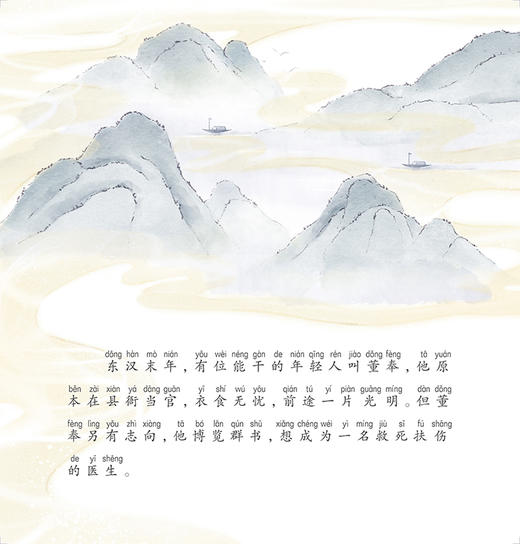 dōng hàn mò nián yǒu wèi néng gàn de nián qīng rén jiào dǒng fèng tā yuán
东汉末年，有位能干的年轻人叫董奉，他原
běn zài xiàn yá dāng guān yī shí wú yōu qián tú yí piàn guāng míng dàn dǒng
本在县衙当官，衣食无忧，前途一片光明。但董
fèng lìng yǒu zhì xiàng tā bó lǎn qún shū xiǎng chéng wéi yì míng jiù sǐ fú shāng
奉另有志向，他博览群书，想成为一名救死扶伤
de yī shēng
的医生。